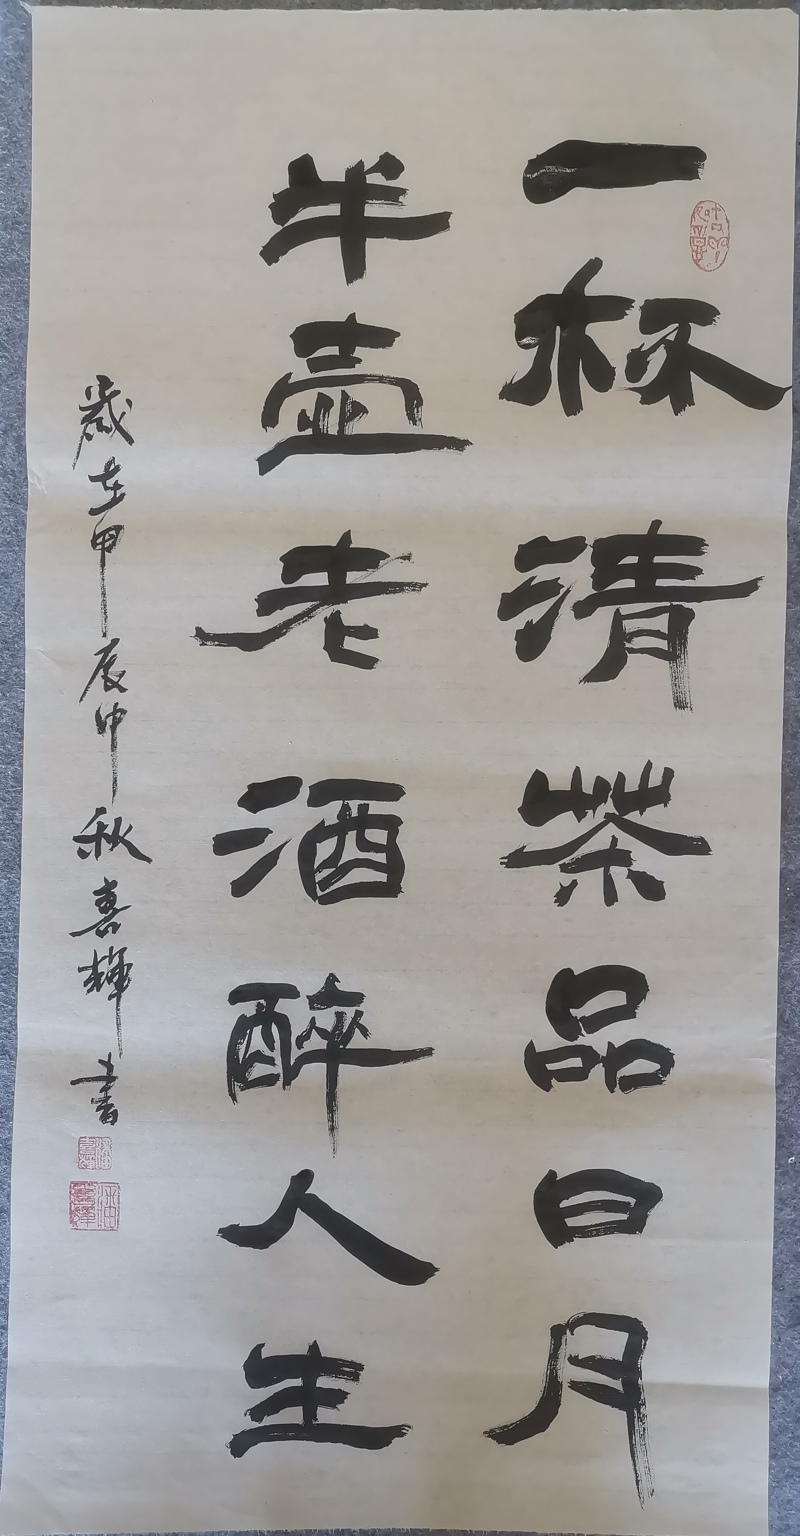 一杯清茶品日月
半壶老酒醉人生
歲在甲辰中秋喜輝書